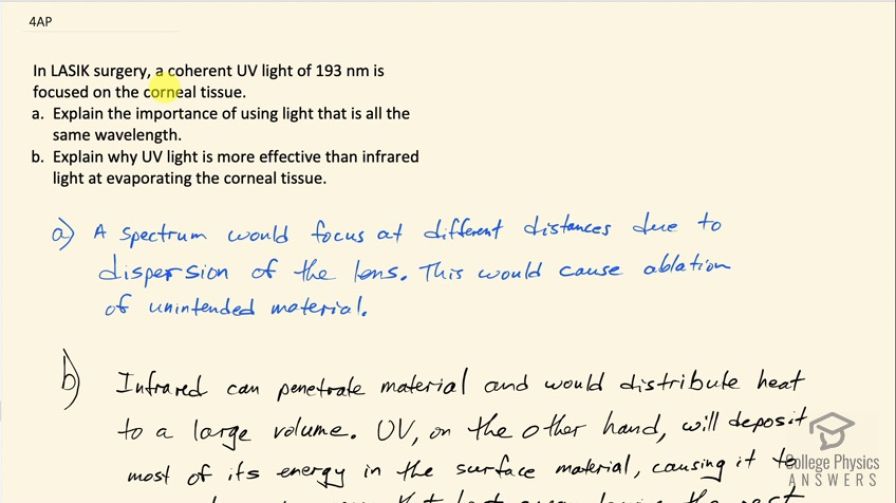 4AP
In LASIK surgery, a coherent UV light of 193 nm is
focused on the corneal tissue.
a. Explain the importance of using light that is all the
same wavelength.
b. Explain why UV light is more effective than infrared
light at evaporating the corneal tissue.
a) A spectrum would focus at different distances due to
dispersion of the lens. This would cause ablation
of unintended material.
b) Infrared can penetrate material and would distribute heat
to a large volume. UV, on the other hand, will deposit
most of its energy in the surface material, causing it to
College Physics
ANSWERS